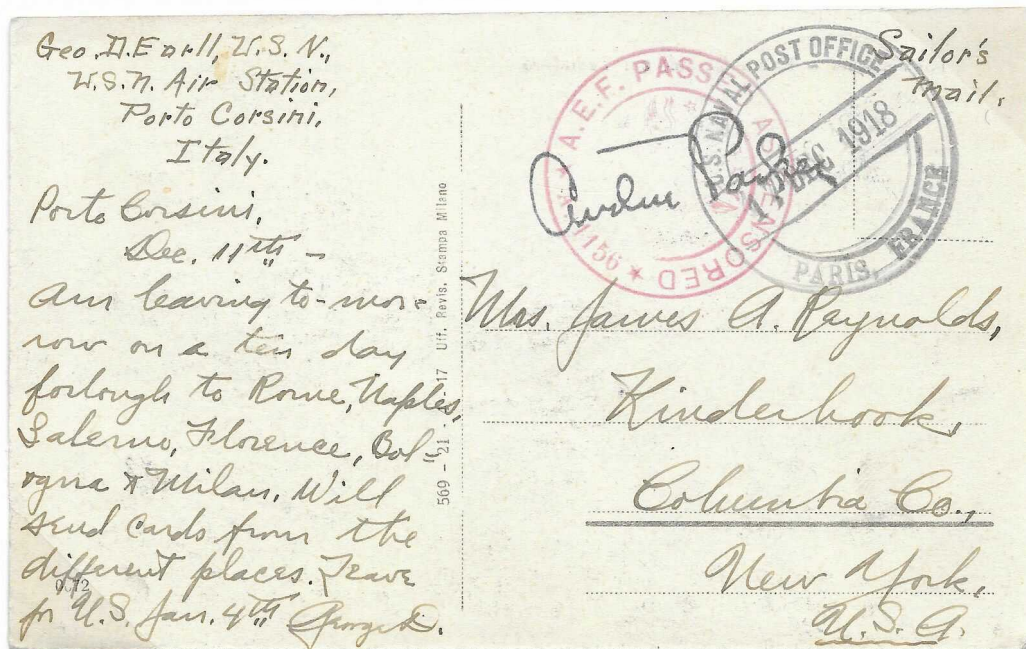 Geo. D. Earll, U.S.N.,
U.S.N. Air Station,
Porto Corsini,
Italy.
Porto Corsini,
Dec. 11th –
Am leaving to-mor-
row on a ten day
forlough to Rome, Naples,
Salerno, Florence, Bol-
ogna & Milan. Will
send cards from the
different places. Leave
for U.S. Jan. 4th George D.
0072
569 - 21 - 17 Uff. Revis. Stampa Milano
A.E.F. PASSED AS CENSORED
156
U.S. NAVAL POST OFFICE
DEC 1918
PARIS, FRANCE
Sailor's
mail.
Mrs. James A. Raynolds,
Kinderhook,
Columbia Co.,
New York,
U.S.A.